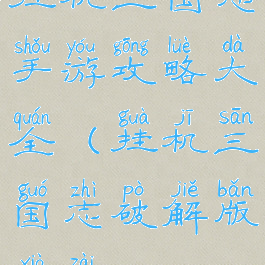 shǒu yóu gōng lüè dà
手游攻略大
quán guà jī sān
全（挂机三
guó zhì pò jiě bǎn
国志破解版
xià zǎi